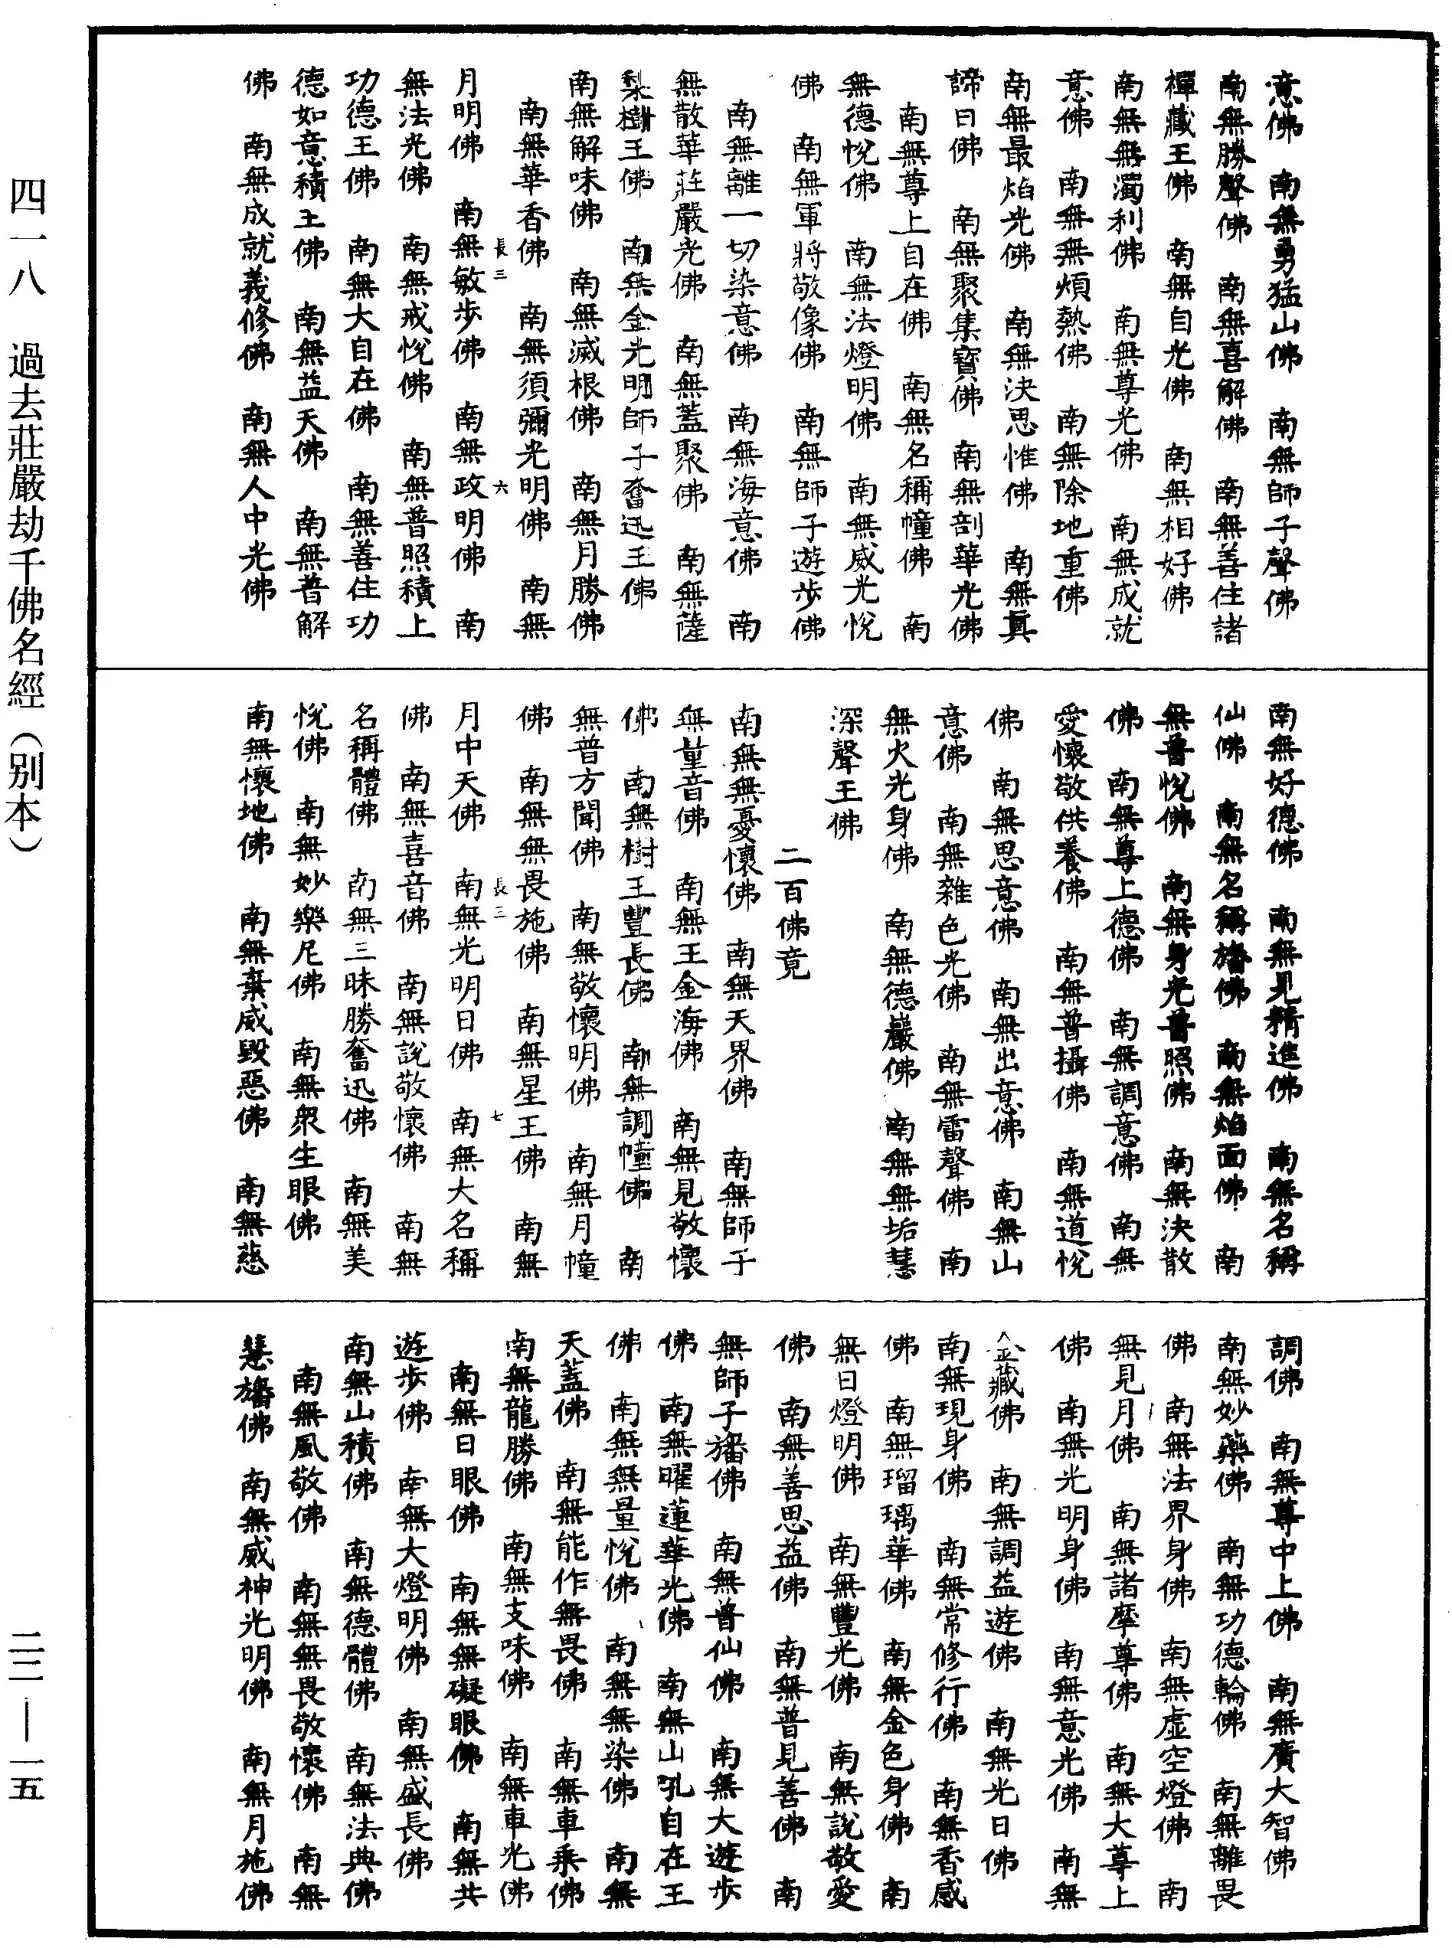 意佛　南無勇猛山佛　南無師子聲佛
南無勝聲佛　南無喜解佛　南無善住諸
禪藏王佛　南無自光佛　南無相好佛
南無無濁利佛　南無尊光佛　南無成就
意佛　南無無煩熱佛　南無除地重佛
南無最焰光佛　南無決思惟佛　南無真
諦日佛　南無聚集寶佛　南無剖華光佛
南無尊上自在佛　南無名稱幢佛　南
無德悅佛　南無法燈明佛　南無威光悅
佛　南無軍將敬像佛　南無師子遊步佛
南無離一切染意佛　南無海意佛　南
無散華莊嚴光佛　南無蓋聚佛　南無薩
梨樹王佛　南無金光明師子奮迅王佛
南無解味佛　南無滅根佛　南無月勝佛
南無華香佛　南無須彌光明佛　南無
長三　六
月明佛　南無敏步佛　南無政明佛　南
無法光佛　南無戒悅佛　南無普照積上
功德王佛　南無大自在佛　南無善住功
德如意積王佛　南無益天佛　南無普解
佛　南無成就義修佛　南無人中光佛
南無好德佛　南無見精進佛　南無名稱
仙佛　南無名稱旛佛　南無焰面佛　南
無普悅佛　南無身光普照佛　南無決散
佛　南無尊上德佛　南無調意佛　南無
愛懷敬供養佛　南無普攝佛　南無道悅
佛　南無思意佛　南無出意佛　南無山
意佛　南無雜色光佛　南無雷聲佛　南
無火光身佛　南無德巖佛　南無無垢慧
深聲王佛
二百佛竟
南無無憂懷佛　南無天界佛　南無師子
無量音佛　南無王金海佛　南無見敬懷
佛　南無樹王豐長佛　南無調幢佛　南
無普方聞佛　南無敬懷明佛　南無月幢
佛　南無無畏施佛　南無星王佛　南無
長三　七
月中天佛　南無光明日佛　南無大名稱
佛　南無喜音佛　南無說敬懷佛　南無
名稱體佛　南無三昧勝奮迅佛　南無美
悅佛　南無妙樂尼佛　南無眾生眼佛
南無懷地佛　南無棄威毀惡佛　南無慈
調佛　南無尊中上佛　南無廣大智佛
南無妙藥佛　南無功德輪佛　南無離畏
佛　南無法界身佛　南無虛空燈佛　南
無見月佛　南無諸摩尊佛　南無大尊上
佛　南無光明身佛　南無意光佛　南無
金藏佛　南無調益遊佛　南無光日佛
南無現身佛　南無常修行佛　南無香感
佛　南無瑠璃華佛　南無金色身佛　南
無日燈明佛　南無豐光佛　南無說敬愛
佛　南無善思益佛　南無普見善佛　南
無師子旛佛　南無普仙佛　南無大遊步
佛　南無曜蓮華光佛　南無山吼自在王
佛　南無無量悅佛　南無無染佛　南無
天蓋佛　南無能作無畏佛　南無車乘佛
南無龍勝佛　南無支味佛　南無車光佛
南無日眼佛　南無無礙眼佛　南無共
遊步佛　南無大燈明佛　南無盛長佛
南無山積佛　南無德體佛　南無法典佛
南無風敬佛　南無無畏敬懷佛　南無
慧旛佛　南無威神光明佛　南無月施佛
四一八　過去莊嚴劫千佛名經（別本）
二二—一五